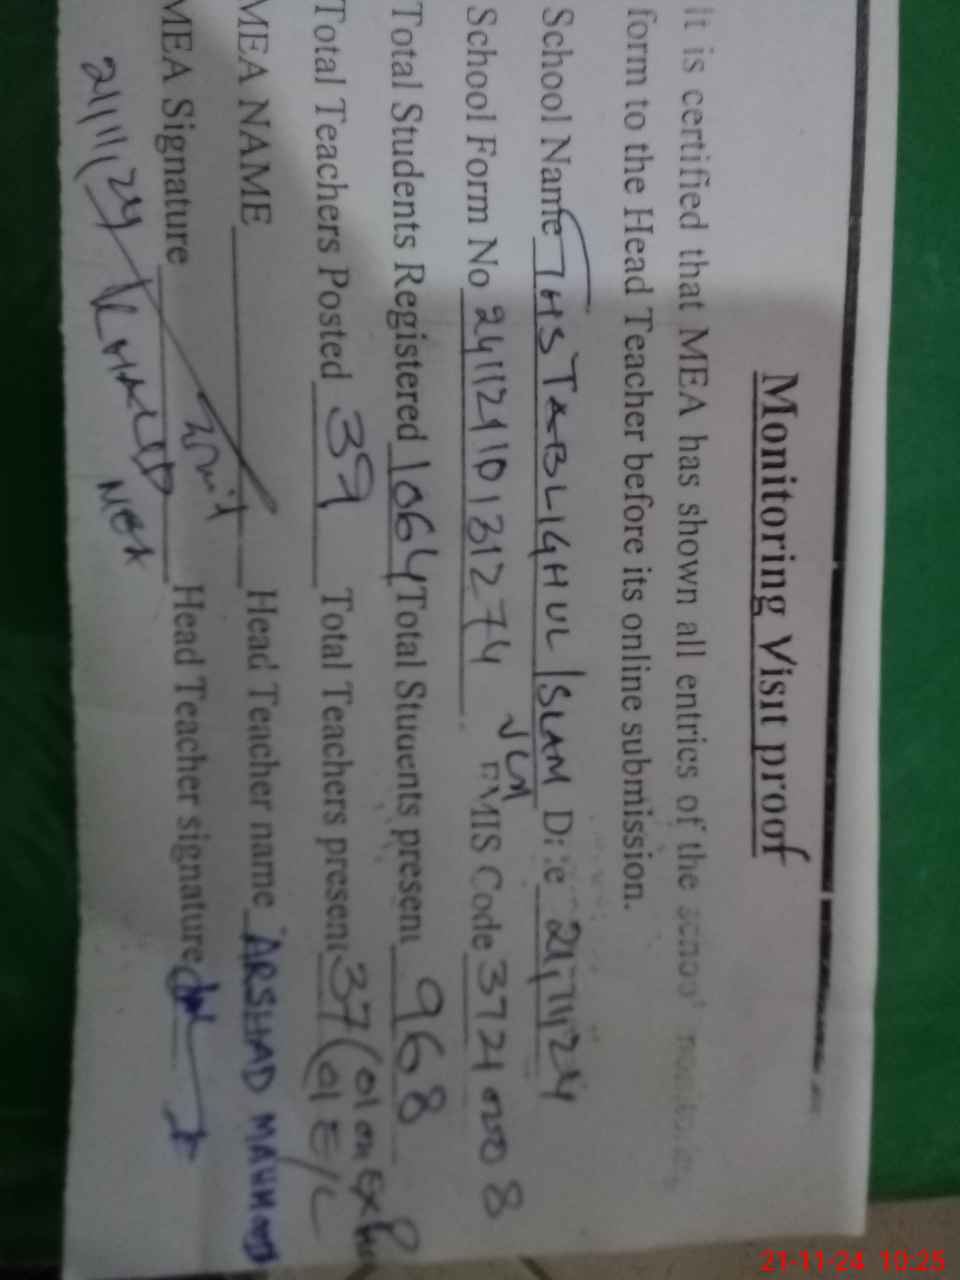 Monitoring Visit proof
It is certified that MEA has shown all entries of the school monitoring
form to the Head Teacher before its online submission.
School Name GHS TABLIGHUL ISLAM Date 21/11/24
JLM
School Form No 24112110131274 EMIS Code 37210008
Total Students Registered 1064 Total Students present 968
Total Teachers Posted 39 Total Teachers present 37 (01 on Ex
(01 E/L
MEA NAME Head Teacher name ARSHAD MAHMOOD
MEA Signature Head Teacher signature
21/11/24 KHALID
MEA
21-11-24 10:25